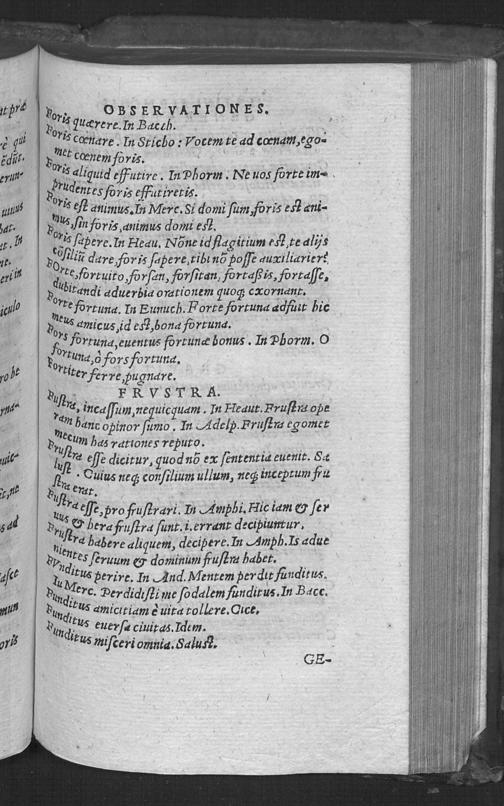 OBSERVATIONES.
Foris quærere. In Bacch.
Foris cœnare. In Sticho: Vocem te ad cœnam, ego-
met cœnem foris.
Foris aliquid effutire. In Phorm. Ne uos forte im-
prudentes foris effutiretis.
Foris est animus. In Merc. Si domi sum, foris est ani-
mus, sin foris, animus domi est.
Foris sapere. In Heau. Nōne id flagitium est, te alijs
cōsiliū dare, foris sapere, tibi nō posse auxiliarier?
FOrte, fortuito, forsan, forsitan, fortaßis, fortasse,
dubitandi aduerbia orationem quoq; exornant.
Forte fortuna. In Eunuch. Forte fortuna adfuit hic
meus amicus, id est, bona fortuna.
Fors fortuna, euentus fortunæ bonus. In Phorm. O
fortuna, ô fors fortuna.
Fortiter ferre, pugnare.
FRVSTRA.
Frustra, incassum, nequicquam. In Heaut. Frustra ope
ram hanc opinor sumo. In Adelp. Frustra egomet
mecum has rationes reputo.
Frustra esse dicitur, quod nō ex sententia euenit. Sa
lust. Cuius neq; consilium ullum, neq; inceptum fru
stra erat.
Frustra esse, pro frustrari. In Amphi. Hic iam & ser
uus & hera frustra sunt. i. errant decipiuntur.
Frustra habere aliquem, decipere. In Amph. Is adue
nientes seruum & dominum frustra habet.
FVnditus perire. In And. Mentem perdit funditus.
In Merc. Perdidisti me sodalem funditus. In Bacc.
Funditus amicitiam è uita tollere. Cice.
Funditus euersa ciuitas. Idem.
Funditus misceri omnia. Salust.
GE-